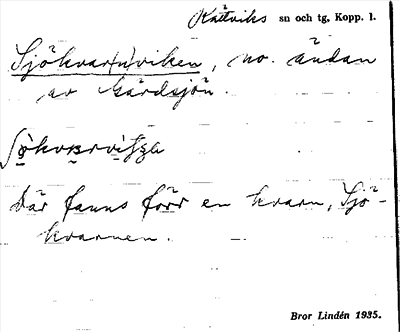 Rättviks sn och tg, Kopp. l.
Sjökvar(n)viken, no. ändan
av Gärdsjön.
Där fanns förr en kvarn, Sjö-
kvarnen.
Bror Lindén 1935.